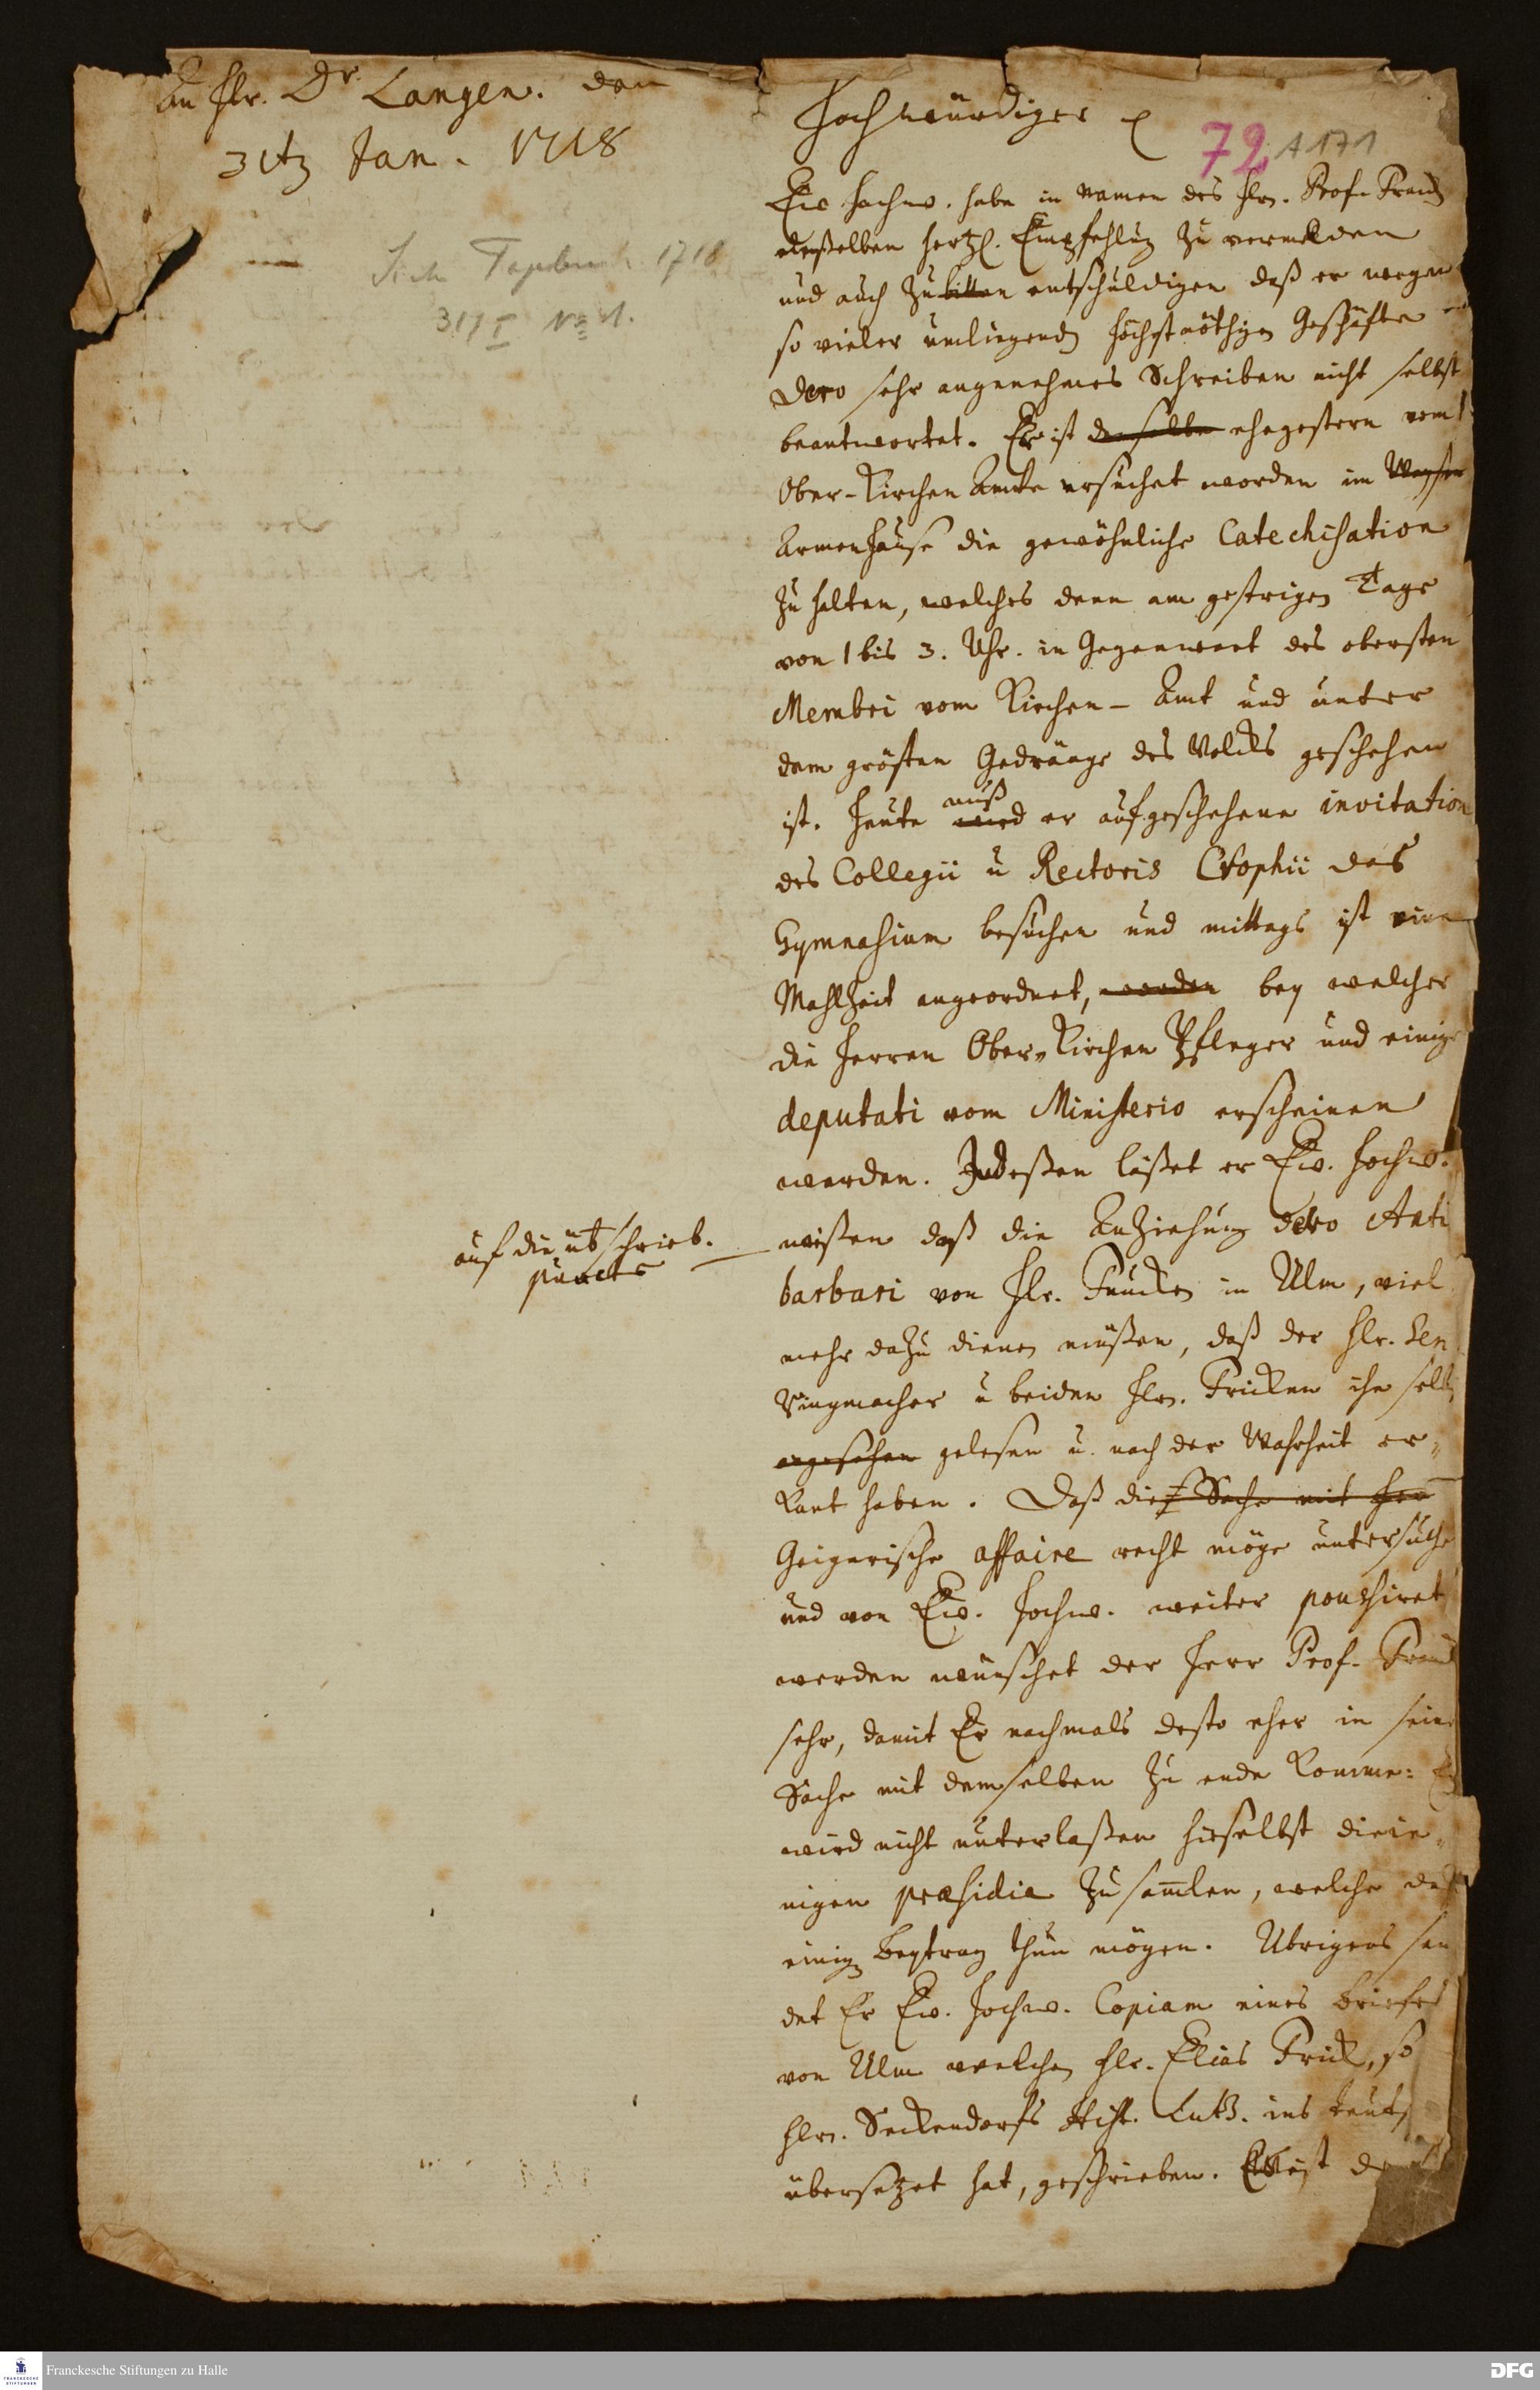 An Hr. Dr Langen. den
31ten Jan. 1718
Hochwürdiger
72 A 171
Sieh Tagebuch 1718
31/I No 1.
Ew Hochw. habe in Namen des Hrn. Prof. Franck
deßelben hertzl. Empfehlung zu vermelden
und auch zu bitten entschuldigen daß er wegen
so vieler umliegenden höchstnöthigen Geschäfte
Dero sehr angenehmes Schreiben nicht selbst
beantwortet. Er ist derselbe ehegestern vom
Ober-Kirchen Amte ersuchet worden im Waysen
Armenhause die gewöhnliche Catechisation
zu halten, welches denn am gestrigen Tage
von 1 bis 3. Uhr. in Gegenwart des obersten
Membri vom Kirchen-Amt und unter
dem grösten Gedränge des Volcks geschehen
ist. Heute wird muß er auf geschehene invitation
des Collegii u Rectoris Crophii das
Gymnasium besuchen und mittags ist eine
Mahlzeit angeordnet, worden bey welcher
die Herren Ober-Kirchen Pfleger und einige
deputati vom Ministerio erscheinen
werden. Indeßen läßet er Ew. Hochw.
wißen daß die Anziehung dero Anti
auf die übschrieb.
puncte
barbari von Hr. Funcken in Ulm, viel
mehr dazu dienen müßen, daß der Hr. Sen
Ringmacher u beiden Hrn. Fricken ihn selbst
angesehen gelesen u. nach der Wahrheit er-
kant haben. Daß die Sache mit Herr
Geigerische affaire recht möge untersuche
und von Ew. Hochw. weiter poushiret
werden wünschet der Herr Prof. Franck
sehr, damit Er nachmals desto eher in seine
Sache mit demselben zu ende komme: Er
wird nicht unterlaßen hieselbst dieie-
nigen præsidia zu samlen, welche
einign Beytrag thun mögen. Ubrigens sen
det Er Ew. Hochw. Copiam eines Briefes
von Ulm welchen Hr. Elias Frick, so
Hrn. Seckendorfs Hist. Luth. ins teutsch
übersetzet hat, geschrieben. Es ist
Franckesche Stiftungen zu Halle
FRANCKESCHE STIFTUNGEN
DFG